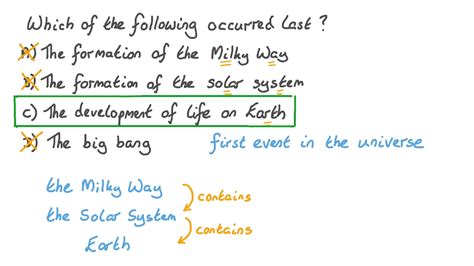 Which of the following occurred last?
A) The formation of the Milky Way
B) The formation of the solar system
C) The development of life on Earth
D) The big bang first event in the universe
the Milky Way
contains
the Solar System
contains
Earth